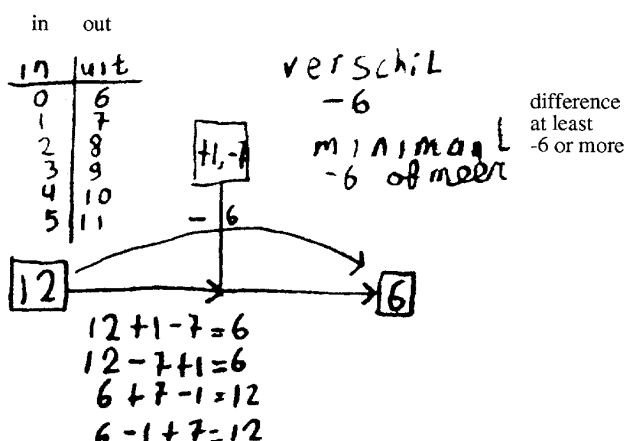 in out
in uit
0 6
1 7
2 8
3 9
4 10
5 11
verschil
-6
minimaal
-6 of meer
difference
at least
-6 or more
+1,-7
- 6
12
6
12+1-7=6
12-7+1=6
6+7-1=12
6-1+7=12